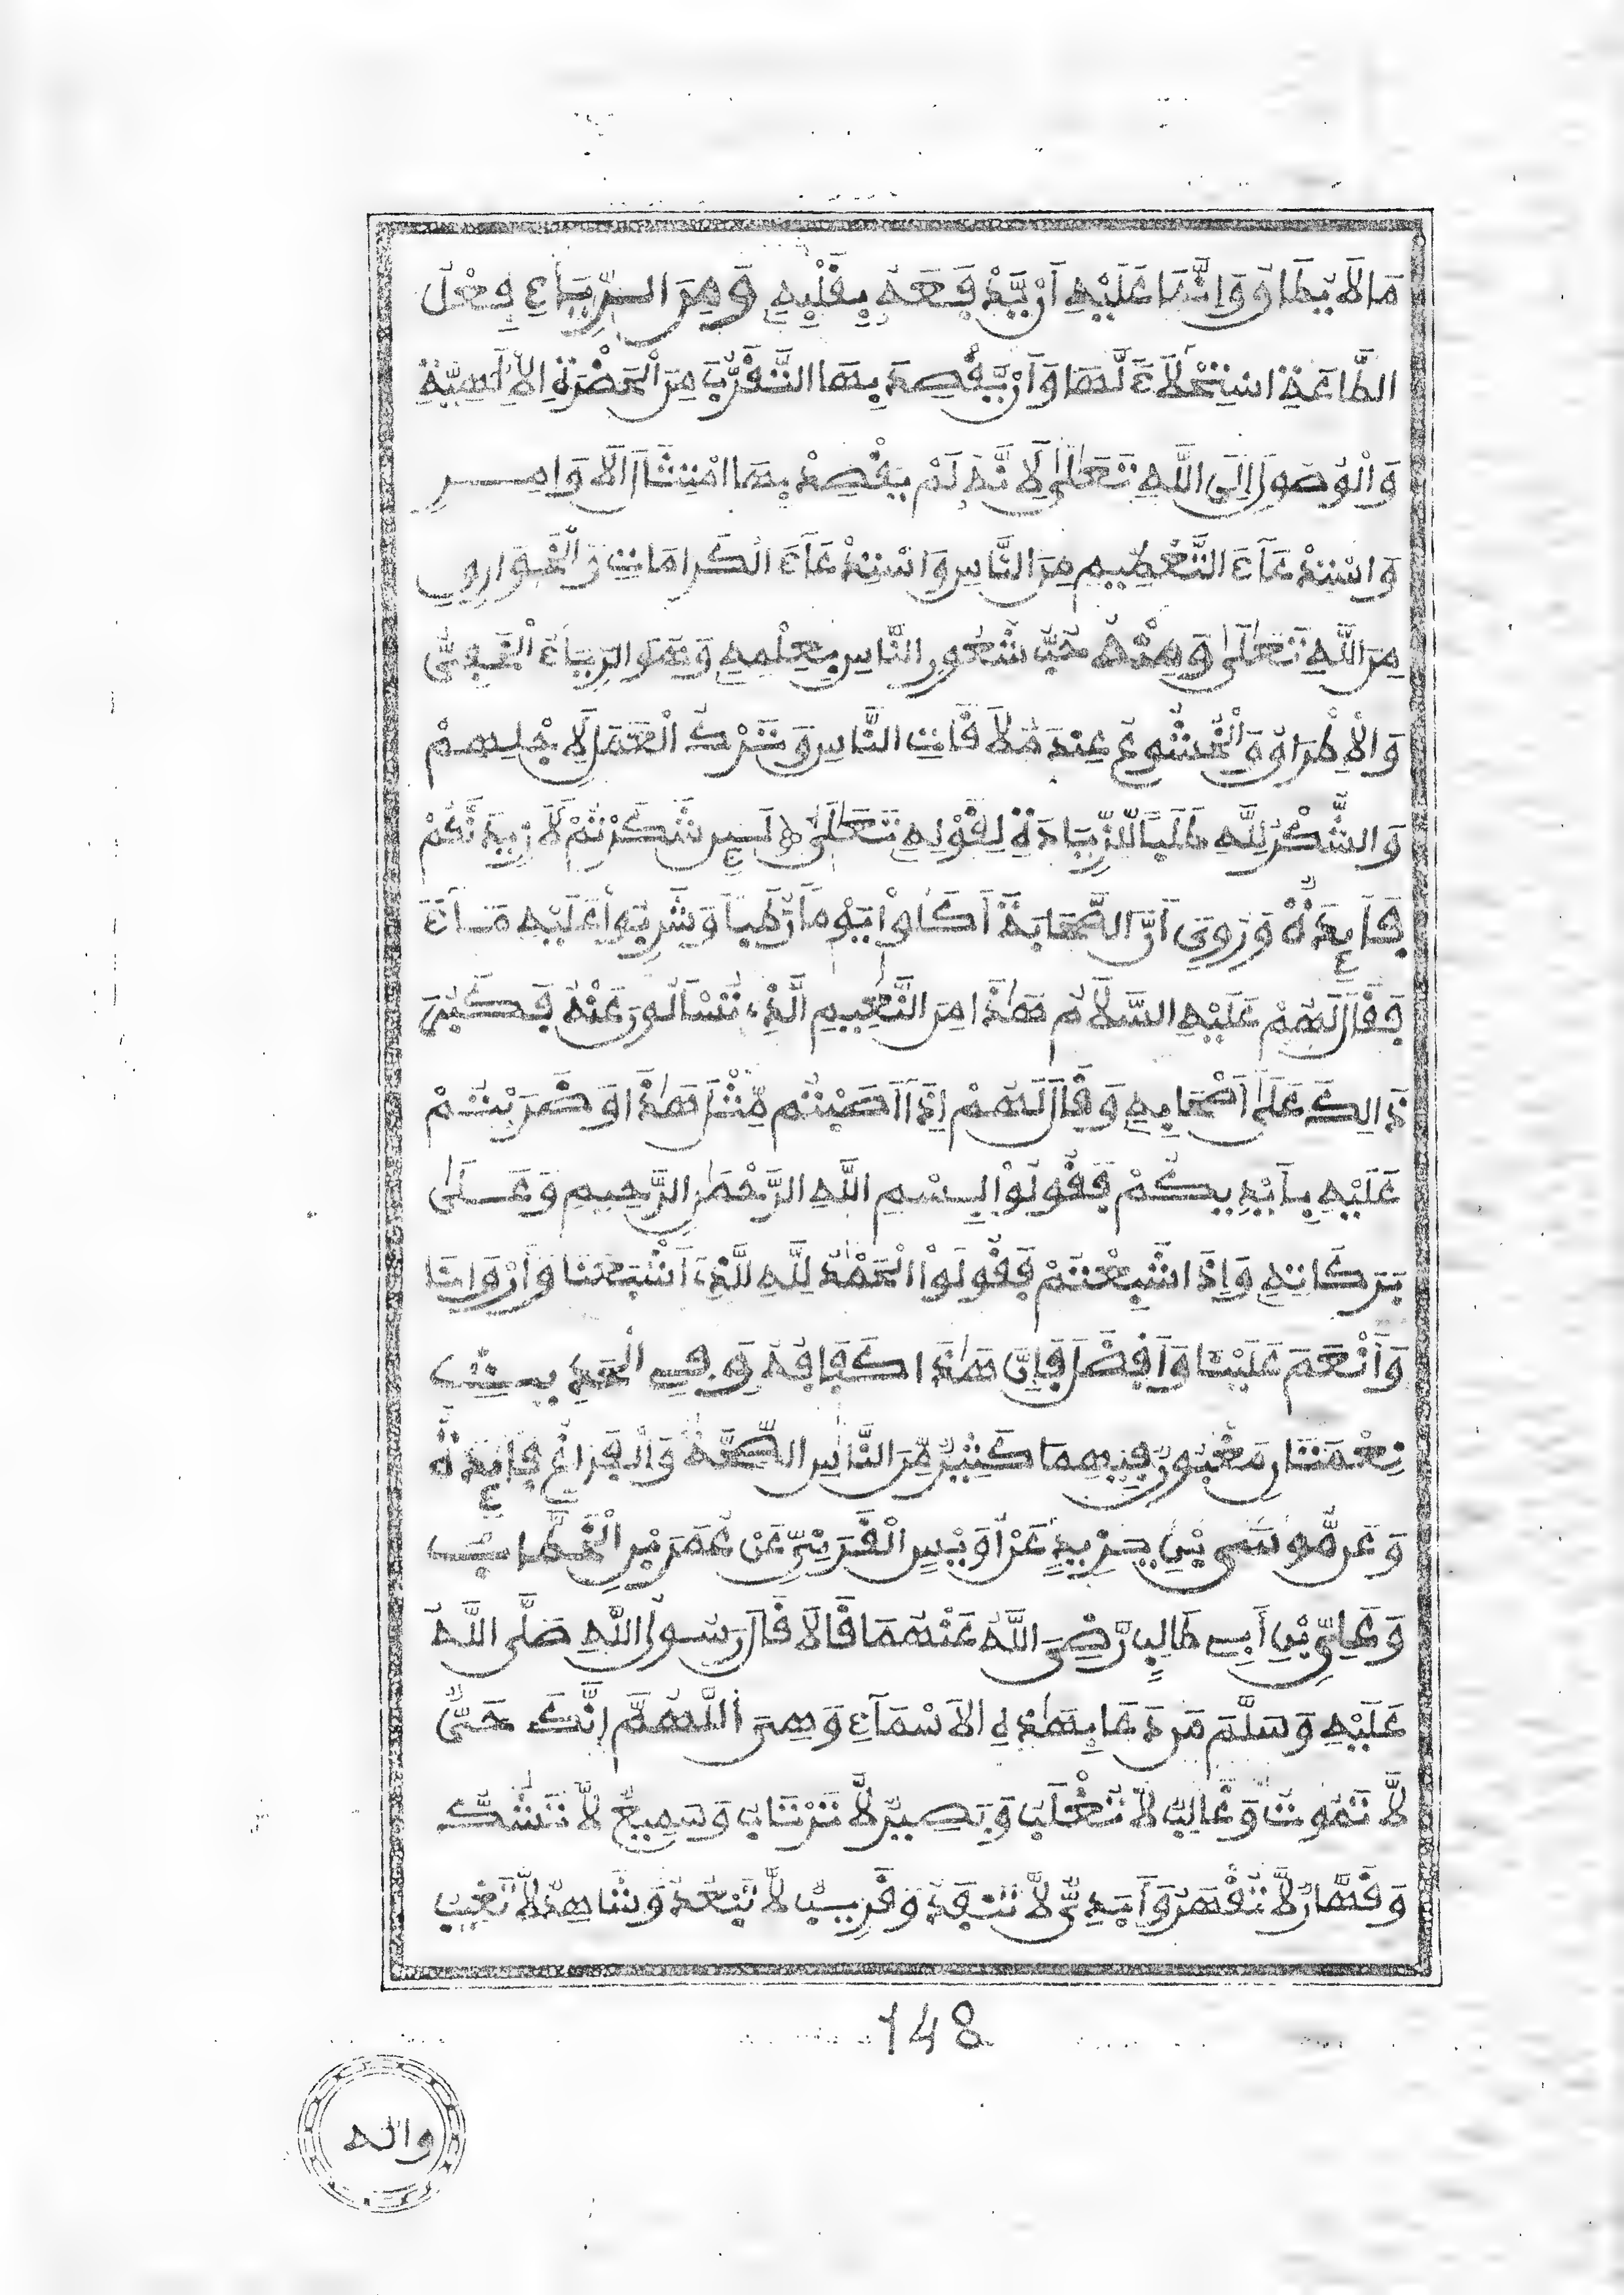 مَا لَا يُطَاقُ وَإِنَّمَا عَلَيْهِ أَنْ يَّدْفَعَهُ بِقَلْبِهِ وَمِنَ الرِّيَاءِ فِعْلُ
الطَّاعَةِ اسْتِحْلَاءً لَّهَا وَأَنْ يَّقْصِدَ بِهَا التَّقَرُّبَ مِنَ الْحَضْرَةِ الْإِلَٰهِيَّةِ
وَالْوُصُولَ إِلَى اللَّهِ تَعَالَىٰ لِأَنَّهُ لَمْ يَقْصِدْ بِهَا امْتِثَالَ الْأَوَامِرِ
وَاسْتِدْعَاءَ التَّعْظِيمِ مِنَ النَّاسِ وَاسْتِدْعَاءَ الْكَرَامَاتِ وَالْخَوَارِقِ
مِنَ اللَّهِ تَعَالَىٰ وَمِنْهُ حُبُّ شُعُورِ النَّاسِ بِعِلْمِهِ وَهُوَ الرِّيَاءُ الْخَفِيُّ
وَالْإِطْرَاقُ وَالْخُشُوعُ عِنْدَ مُلَاقَاتِ النَّاسِ وَتَرْكُ الْعَمَلِ لِأَجْلِهِمْ
وَالشُّكْرُ لِلَّهِ طَلَبًا لِّلزِّيَادَةِ لِقَوْلِهِ تَعَالَىٰ لَئِن شَكَرْتُمْ لَأَزِيدَنَّكُمْ
فَائِدَةٌ وَرُوِيَ أَنَّ الصَّحَابَةَ أَكَلُواْ يَوْمًا رُّطَبًا وَشَرِبُواْ عَلَيْهِ مَاءً
فَقَالَ لَهُمْ عَلَيْهِ السَّلَامُ هَٰذَا مِنَ النَّعِيمِ الَّذِي تُسْأَلُونَ عَنْهُ فَكَبُرَ
ذَالِكَ عَلَىٰ أَصْحَابِهِ وَقَالَ لَهُمْ إِذَا أَصَبْتُم مِّثْلَ هَٰذَا وَضَرَبْتُمْ
عَلَيْهِ بِأَيْدِيكُمْ فَقُولُواْ بِسْمِ اللَّهِ الرَّحْمَٰنِ الرَّحِيمِ وَعَلَىٰ
بَرَكَاتِهِ وَإِذَا شَبِعْتُمْ فَقُولُواْ الْحَمْدُ لِلَّهِ الَّذِي أَشْبَعَنَا وَأَرْوَانَا
وَأَنْعَمَ عَلَيْنَا وَأَفْضَلَ فَإِنَّ هَٰذَا كَفَافُهُ وَفِي الْحَدِيثِ
نِعْمَتَانِ مَغْبُونٌ فِيهِمَا كَثِيرٌ مِّنَ النَّاسِ الصِّحَّةُ وَالْفَرَاغُ فَائِدَةٌ
وَعَن مُّوسَى بْنِ يَزِيدٍ عَنْ أُوَيْسِ الْقَرَنِيِّ عَنْ عُمَرَ بْنِ الْخَطَّابِ
وَعَلِيِّ بْنِ أَبِي طَالِبٍ رَّضِيَ اللَّهُ عَنْهُمَا قَالَا قَالَ رَسُولُ اللَّهِ صَلَّى اللَّهُ
عَلَيْهِ وَسَلَّمَ مَن دَعَا بِهَٰذِهِ الْأَسْمَاءِ وَهِيَ اللَّهُمَّ إِنَّكَ حَيٌّ
لَّا تَمُوتُ وَغَالِبٌ لَّا تُغْلَبُ وَبَصِيرٌ لَّا تَرْتَابُ وَسَمِيعٌ لَّا تَشُكُّ
وَقَهَّارٌ لَّا تُقْهَرُ وَأَبَدِيٌّ لَّا تَنْفَدُ وَقَرِيبٌ لَّا تَبْعُدُ وَشَاهِدٌ لَّا تَغِيبُ
148
وإله